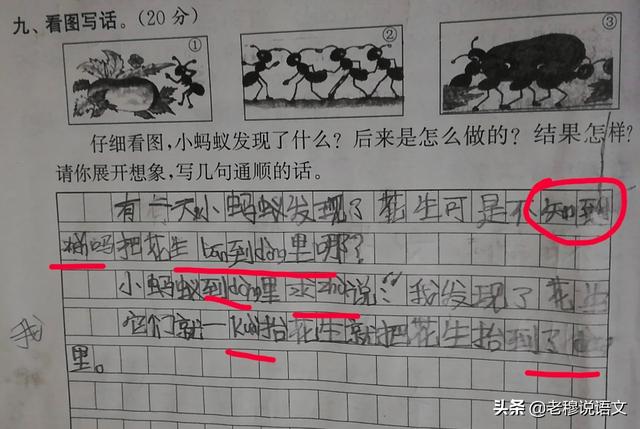 九、看图写话。(20分)
① ② ③
仔细看图,小蚂蚁发现了什么?后来是怎么做的?结果怎样?
请你展开想象,写几句通顺的话。
有一天小蚂蚁发现了花生可是不知到
吗把花生 到 里哪?
小蚂蚁到dòng里 说:“我发现了花生
它们就一kuài抬花生就把花生抬到了
我
里。
头条 @老穆说语文